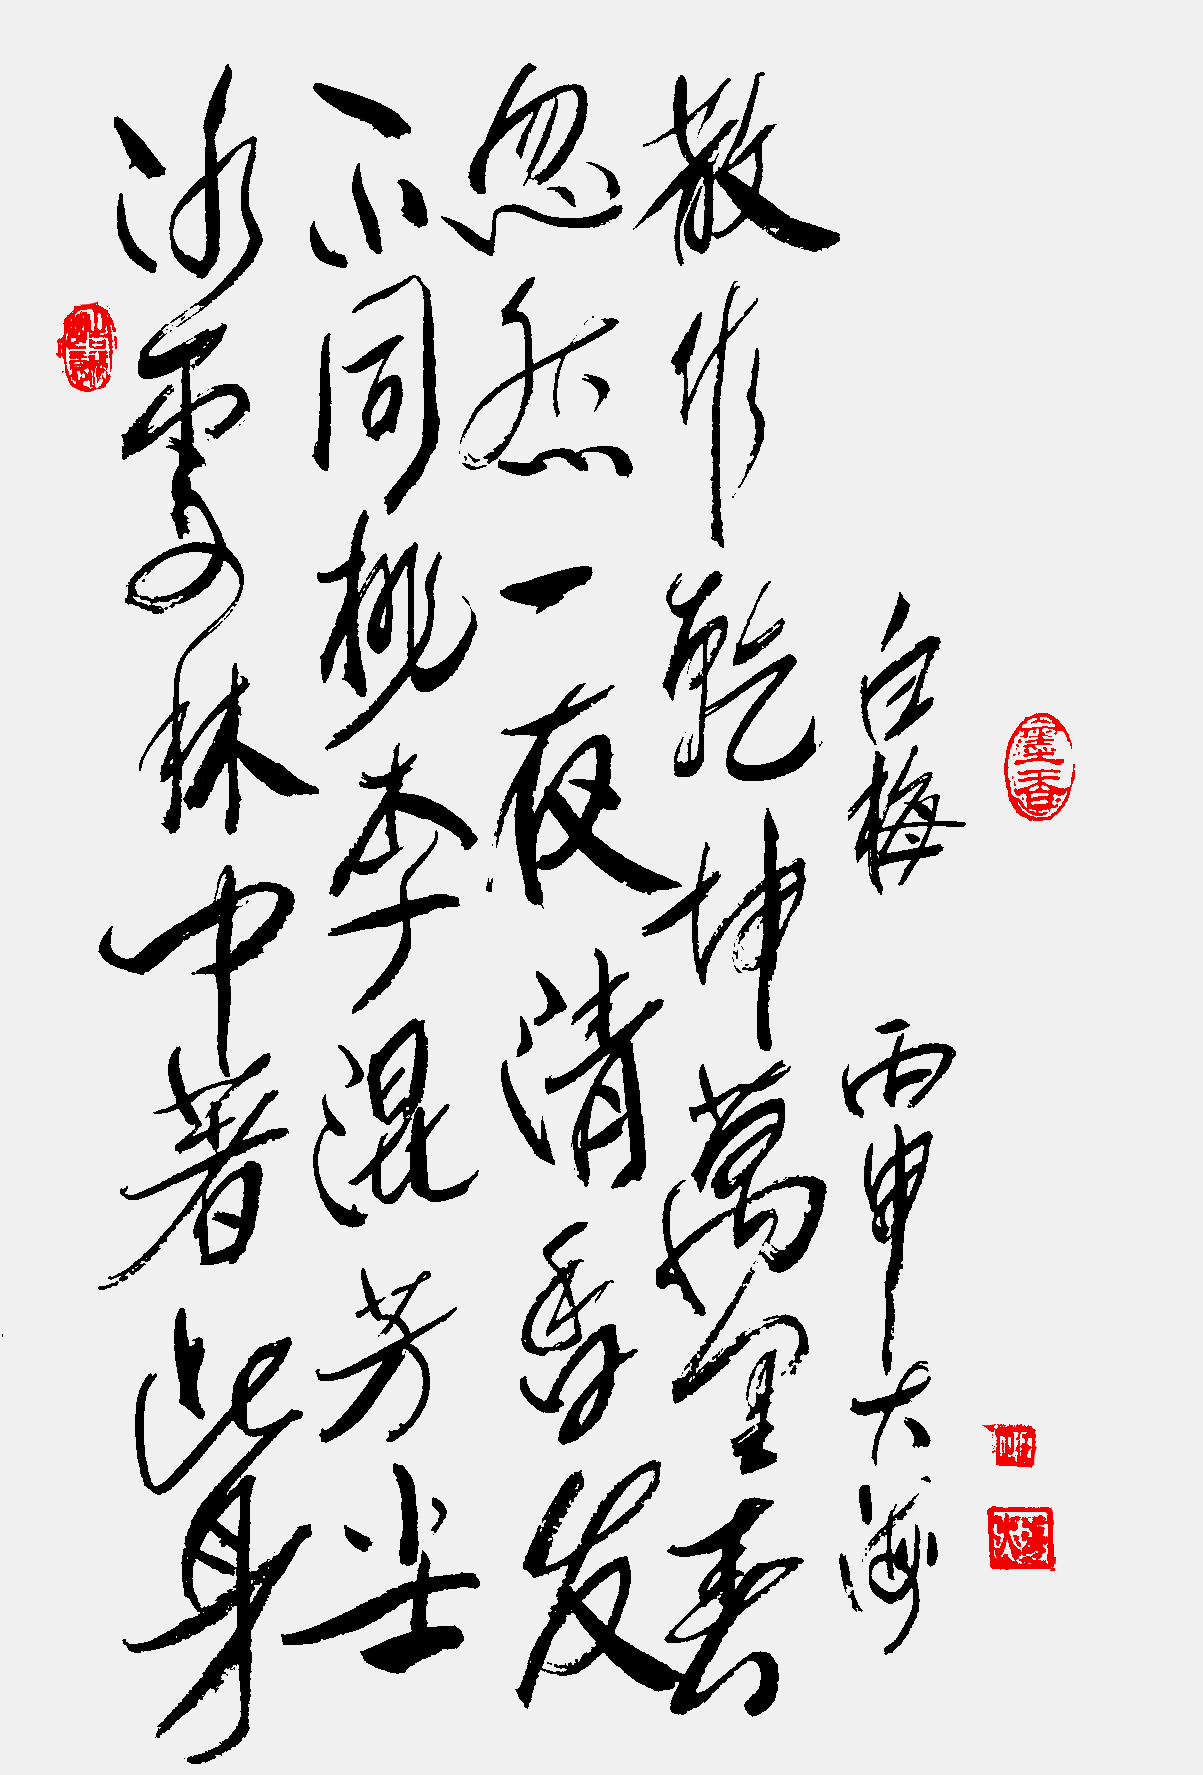 冰雪林中著此身
不同桃李混芳尘
忽然一夜清香发
散作乾坤萬里春
白梅 丙申大海
墨香